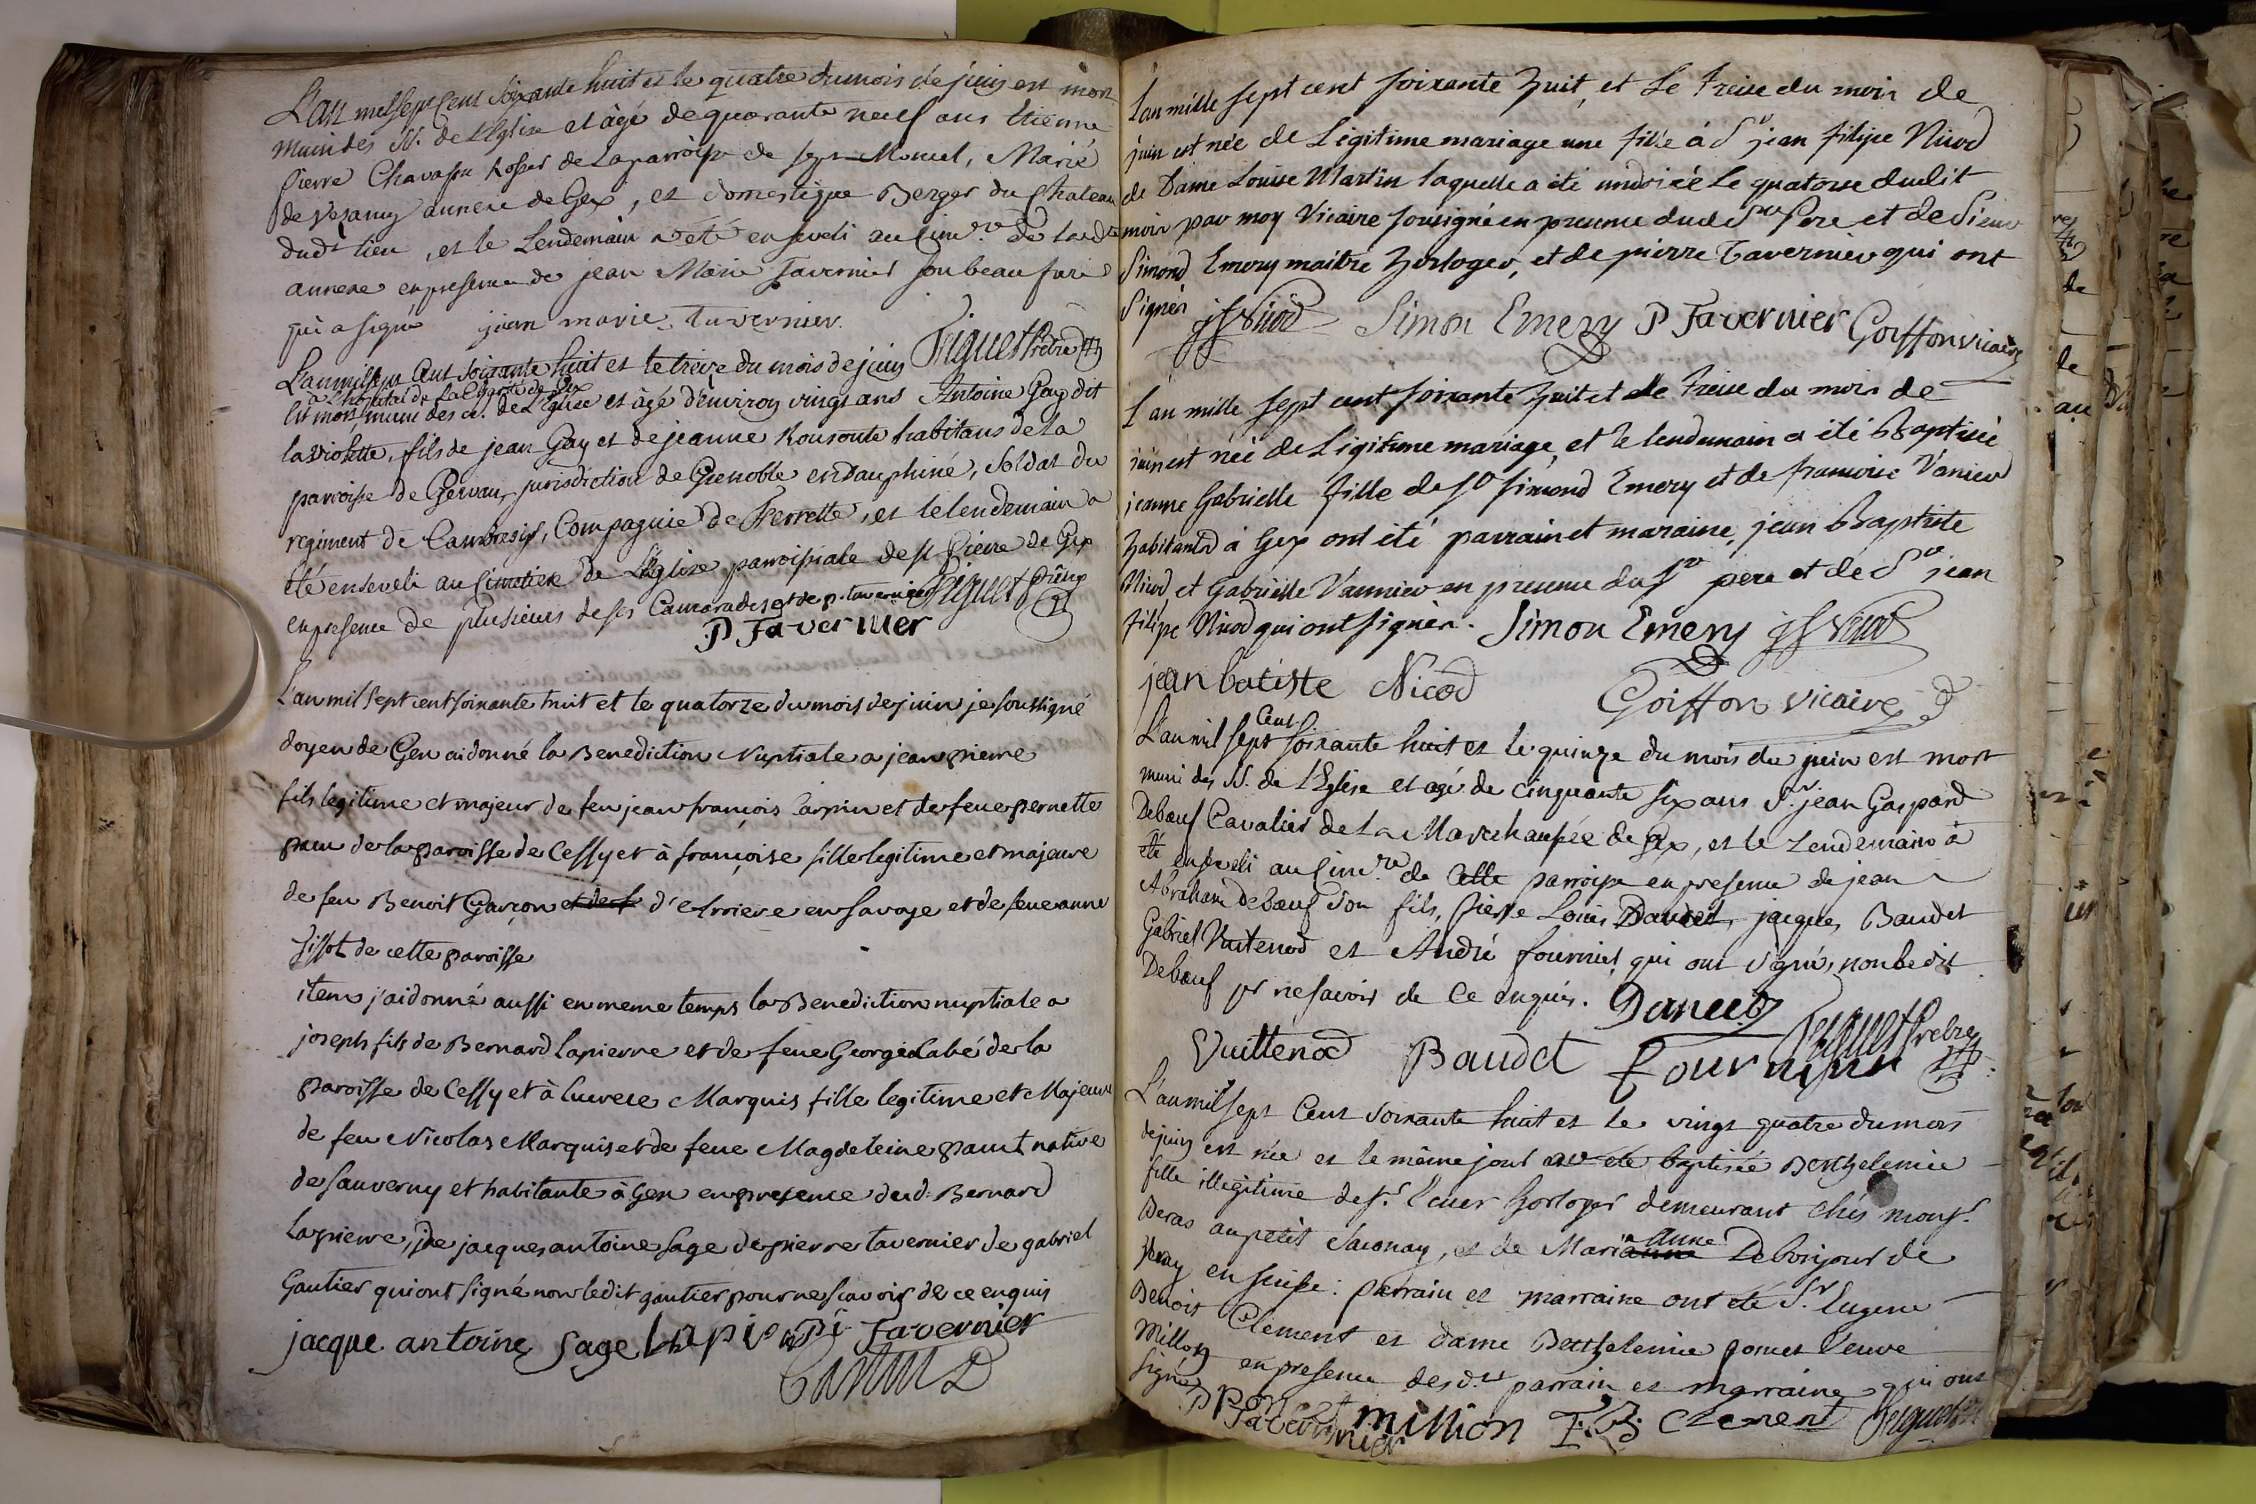 L'an mil sept cent soixante huit et le quatre du mois de juin est mort
muni des SS. de L'Eglise et âgé de quarante neuf ans Etienne
pierre Chavassu de la parroisse de sept Moncel, Marié
de Vesancy annexe de Gex, et domestique Berger du Chateau
dud.t lieu, et le Lendemain a été enseveli au Cim.re de lad.te
annexe en presence de jean Marie Tavernier son beau frere
qui a signé jean marie Tavernier. Piguet Prêtre
L'an mil sept Cent soixante huit et le treize du mois de juin
a L'hopital de La Charité de Gex
est mort muni des ss. de L'Eglise et âgé d'environ vingt ans Antoine Gay dit
la violette, fils de jean Gay et de jeanne habitans de la
parroisse de jurisdiction de Grenoble en Dauphiné, Soldat du
regiment de Cambresis, Compagnie de Ferrette, et le lendemain a
été enseveli au Cimetiere de L'Eglise parroissiale de st. Pierre de Gex
en presence de plusieurs de ses Camarades et de p. tavernier Piguet Prêtre
P Tavernier
L'an mil sept cent soixante huit et le quatorze du mois de juin je soussigné
doyen de Gex ai donné la Benediction Nuptiale a jean pierre
fils legitime et majeur de feu jean françois Carpin et de feue pernette
de la paroisse de Cessy et à françoise fille legitime et majeure
de feu Benoit Garçon et de f d' en Savoye et de feue anne
fissot de cette paroisse
item j'ai donné aussi en meme temps la Benediction nuptiale a
joseph fils de Bernard Lapierre et de feue George Labé de la
paroisse de Cessy et à Lucrece Marquis fille legitime et Majeure
de feu Nicolas Marquis et de feue Magdeleine native
de Sauverny et habitante à Gex en presence dud. Bernard
Lapierre, de jacques antoine Sage de pierre tavernier de gabriel
Gautier qui ont signé non ledit gautier pour ne scavoir de ce enquis
jacque antoine Sage Lapier P. Tavernier

L'an mille sept cent soixante huit, et Le treise du mois de
juin est née de Légitime mariage une fille à S.r jean filipe Nicod
de Dame Louise Martin laquelle a été ondoiée Le quatorse dudit
mois par moy Vicaire soussigné en presence dud. S.r pere et de Sieur
Simond Emery maitre horloger, et de pierre Tavernier qui ont
signés jf Nicod Simon Emery P Tavernier Goiffon vicaire
L'an mille sept cent soixante huit et le treise du mois de
juin est née de Légitime mariage, et le lendemain a été Baptisée
jeanne Gabrielle fille de S.r Simond Emery et de francoise Vanier
habitants à Gex ont été parrain et maraine, jean Baptiste
Nicod et Gabrielle Vannier en presence du S.r pere et de S.r jean
filipe Nicod qui ont signés. Simon Emery jf Nicod
jean batiste Nicod Goiffon vicaire
L'an mil sept Cent soixante huit et le quinze du mois de juin est mort
muni des SS. de L'Eglise et agé de cinquante six ans S.r jean Gaspard
Debœuf Cavalier de La Marechaussée de Gex, et le Lendemain à
été enseveli au Cim.re de Cette parroisse en presence de jean
Abraham Debœuf son fils, Pierre Louis jacques Baudet
Gabriel Vuitenod et André fournier, qui ont signé, non ledit
Debœuf pr ne savoir de Ce enquis.
Vuittenod Baudet fournier Piguet Prêtre
L'an mil sept Cent soixante huit et le vingt quatre du mois
de juin est née et le même jour a été baptisée Berthelemie
fille illegitime de S.r horloger demeurant chés mons.r
Deras au petit Saconay, et de Marianne Anne Debonjour de
en suisse: parrain et marraine ont été S.r Eugene
Benoit Clement et dame Berthelemie poncet Veuve
Million en presence desd.ts parrain et marraine qui ont
signé
P Tavernier million E.B clement Piguet